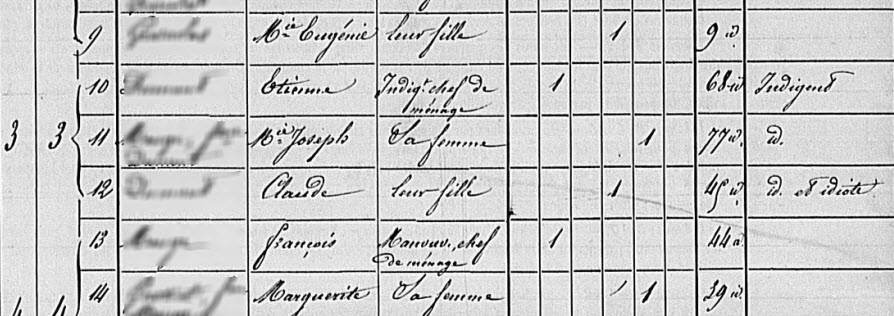 9 Mie Eugénie leur fille 1 9 id.
10 Etienne Indigt. chef de ménage 1 68 id. Indigent
3 3 11 Mie Joseph Sa femme 1 77 id. id.
12 Claude leur fille 1 45 id. id. et idiote
13 François Manouv. chef de ménage 1 44 id.
4 4 14 Marguerite Sa femme 1 39 id.